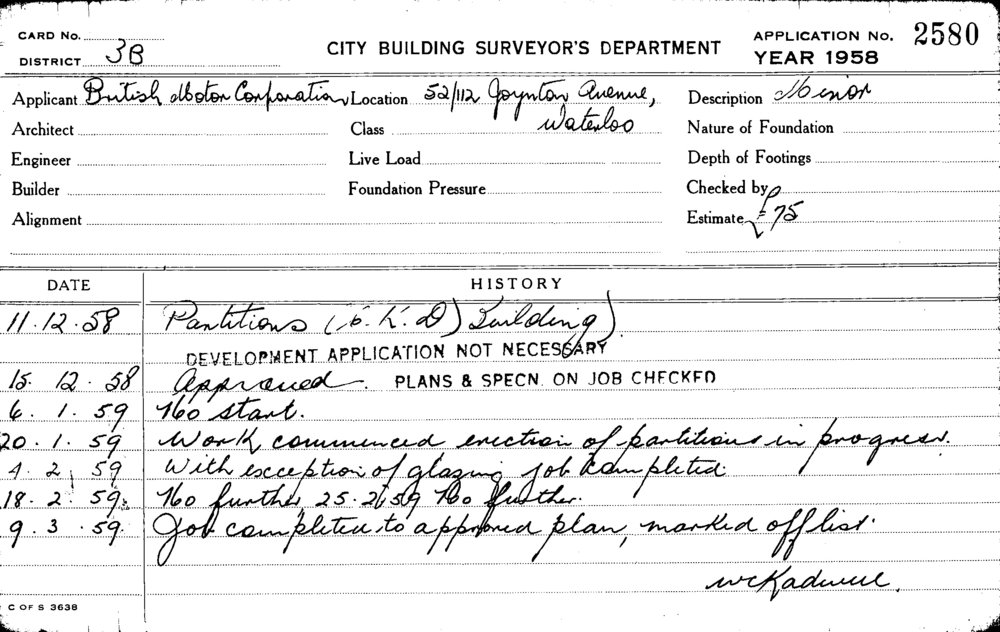 CARD No.
DISTRICT 3B
CITY BUILDING SURVEYOR'S DEPARTMENT
APPLICATION No. 2580
YEAR 1958
Applicant British Motor Corporation Location 52/112 Joynton Avenue, Description Minor
Architect Class Waterloo Nature of Foundation
Engineer Live Load Depth of Footings
Builder Foundation Pressure Checked by
Alignment Estimate £75
DATE HISTORY
11.12.58 Partitions (C.K.D) Building)
DEVELOPMENT APPLICATION NOT NECESSARY
15.12.58 Approved. PLANS & SPECN. ON JOB CHECKED
6.1.59 No start.
20.1.59 Work commenced erection of partitions in progress.
4.2.59 With exception of glazing job completed.
18.2.59 No further, 25.2.59 No further.
9.3.59 Job completed to approved plan, marked off list.
C OF S 3638